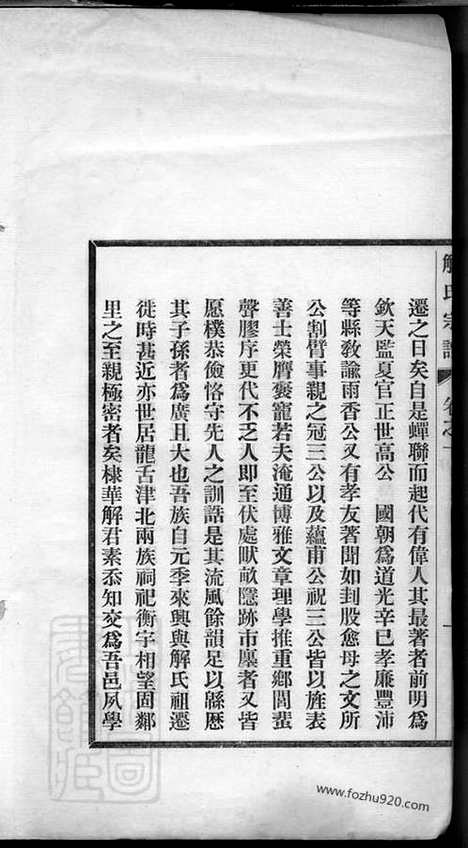 解氏宗譜 卷之一
遷之日矣自是蟬聯而起代有偉人其最著者前明爲
欽天監夏官正世高公　國朝爲道光辛巳孝廉豐沛
等縣敎諭雨香公又有孝友著聞如刲股愈母之文所
公割臂事親之冠三公以及蘊甫公祝三公皆以旌表
善士榮膺褒寵若夫淹通博雅文章理學推重鄉閭蜚
聲膠序更代不乏人卽至伏處畎畝隱跡市廛者又皆
愿樸恭儉恪守先人之訓誥是其流風餘韻足以緜歷
其子孫者爲廣且大也吾族自元季來興與解氏祖遷
徙時甚近亦世居龍舌津北兩族祠祀衡宇相望固鄰
里之至親極密者矣棣華解君素忝知交爲吾邑夙學
www.fozhu920.com